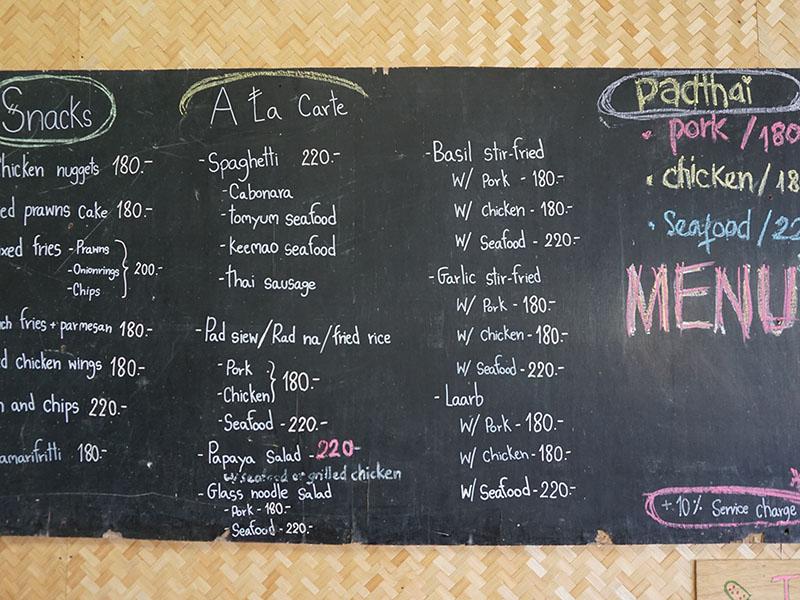 Snacks
hicken nuggets 180.-
ed prawns cake 180.-
xed fries - Prawns
- Onionrings
- Chips
200.-
ch fries + parmesan 180.-
d chicken wings 180.-
n and chips 220.-
amarifritti 180.-
A La Carte
- Spaghetti 220.-
- Cabonara
- tomyum seafood
- keemao seafood
- thai sausage
- Pad siew/Rad na/fried rice
- Pork
- Chicken
180.-
- Seafood - 220.-
- Papaya Salad - 220-
w/seafood or grilled chicken
- Glass noodle salad
- Pork - 180.-
- Seafood - 220.-
- Basil stir-fried
W/ Pork - 180.-
W/ chicken - 180.-
W/ Seafood - 220.-
- Garlic stir-fried
W/ Pork - 180.-
W/ chicken - 180.-
W/ Seafood - 220.-
- Laarb
W/ Pork - 180.-
W/ Chicken - 180.-
W/ Seafood - 220.-
padthai
• pork /180
• chicken/ 18
• Seafood / 22
MENU
+ 10% Service charge